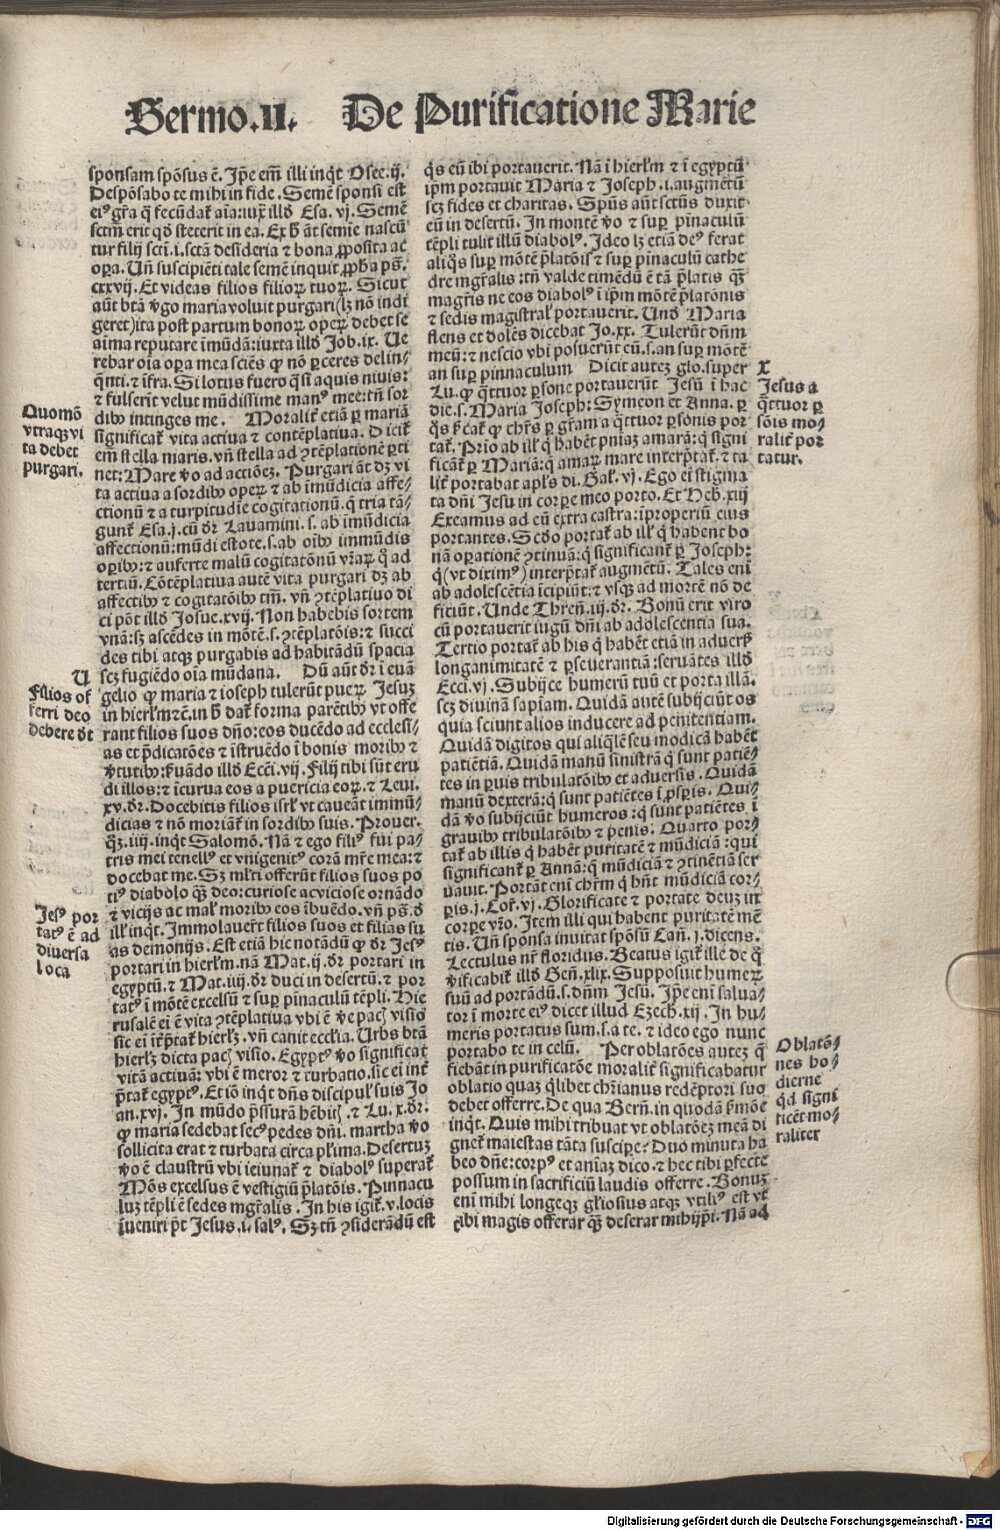 Sermo.II. De Purificatione Marie
sponsam spōsus ē. Ip̄e em̄ illi inq̇t Osee.ij.
Despōsabo te mihi in fide. Semē sponsi est
eiꝰ gr̄a q̄ fecūdat᷑ aīa: iux̄ illđ Esa. vj. Semē
sctm̄ erit qđ steterit in ea. Ex ħ āt semīe nascū
tur filij scti.i. sctā desideria ⁊ bona ꝓposita ac
oꝑa. Uñ suscipiēti tale semē inquit ꝓpħa pš.
cxxvij. Et videas filios filioꝝ tuoꝝ. Sicut
aūt btā v̄go maria voluit purgari (lꝫ nō indi
geret) ita post partum bonoꝝ opeꝝ debet se
aīma reputare īmūdā: iuxta illđ Job.ix. Ue
rebar oīa oꝑa mea sciēs ꝙ nō ꝑceres delin⸗
q̄nti. ⁊ īfra. Si lotus fuero q̄si aquis niuis:
⁊ fulserīt velut mūdissime manꝰ mee: tñ sor
dibꝰ intinges me. Moralit᷑ etiā ꝑ mariā
significat᷑ vita actiua ⁊ contēplatiua. Dicit᷑
em̄ stella maris. vñ stella ad ꝯtēplationē ꝑti
net: Mare v̄o ad actiōeꝫ. Purgari āt dꝫ vi
ta actiua a sordibꝰ opeꝝ ⁊ ab imūdicia affe⸗
ctionū ⁊ a turpitudīe cogitationū. q̄ tria tā⸗
gunt᷑ Esa.j. cū đr Lauamini. s. ab īmūdicia
affectionū: mūdi estote. s. ab oībꝰ immūdis
oꝑibꝰ: ⁊ auferte malū cogitatōnū vr̄aꝝ qđ ad
tertiū. Cōtēplatiua autē vita purgari dꝫ ab
affectibꝰ ⁊ cogitatōibꝰ tm̄. vñ ꝯtēplatiuo di
ci pōt illđ Josue.xvij. Non habebis sortem
vnā: sꝫ ascēdes in mōtē. s. ꝯtēplatōis: ⁊ succi
des tibi atqꝫ purgabis ad habitādū spacia
scꝫ fugiēdo oīa mūdana. Dū aūt đr ī euā
gelio ꝙ maria ⁊ ioseph tulerūt pueꝝ Jesuꝫ
in hierl̄m ⁊c̄. in ħ dat᷑ forma parētibꝰ vt offe
rant filios suos dn̄o: eos ducēdo ad ecclesi⸗
as et p̄dicatōes ⁊ īstruēdo ī bonis moribꝰ ⁊
v̄tutibꝰ: ẜuādo illđ Ecci. vij. Filij tibi sūt eru
di illos: ⁊ īcurua eos a puericia eoꝝ. ⁊ Leui.
xv. đr. Docebitis filios isrl̄ vt caueāt immū⸗
dicias ⁊ nō moriāt᷑ in sordibꝰ suis. Prouer.
q̄ꝫ. iiij. inq̇t Salomō. Nā ⁊ ego filiꝰ fui pa⸗
tris mei tenellꝰ et vnigenitꝰ corā mr̄e mea: ⁊
docebat me. Sꝫ ml̄ti offerūt filios suos po
tiꝰ diabolo q̄ꝫ deo: curiose ac viciose ornādo
⁊ vicijs ac mal᷑ moribꝰ eos ībuēdo. vñ pš. đ
ill᷑ inq̇t. Immolauer̄t filios suos et filias su
as demonijs. Est etiā hic notādū ꝙ đr Jesꝰ
portari in hierl̄m. nā Mat. ij. đr portari in
egyptū. ⁊ Mat. iiij. đr duci in desertū. ⁊ por
tatꝰ ī mōtē excelsū ⁊ suꝑ pinaculū tēpli. Hie
rusalē ei ē vita ꝯtēplatiua vbi ē v̄e pacꝭ visio
sic ei īt̄ꝑtat᷑ hierl̄ꝫ. vñ canit eccl̄ia. Urbs btā
hierl̄ꝫ dicta pacꝭ visio. Egyptꝰ v̄o significat
vitā actiuā: vbi ē meror ⁊ turbatio. sic ei int᷑
p̄tat᷑ egyptꝰ. Et iō inq̇t dn̄s discipul᷑ suis Jo
an. xvj. In mūdo p̄ssurā hēbitꝭ. ⁊ Lu. x. đr:
ꝙ maria sedebat secꝰ pedes dn̄i. martha v̄o
sollicita erat ⁊ turbata circa pl̄ima. Desertuꝫ
v̄o ē claustrū vbi ieiunat᷑ ⁊ diabolꝰ superat᷑
Mōs excelsus ē vestigiū p̄latōis. Pinnacu
luꝫ tēpli ē sedes mgr̄alis. In his igit᷑. v. locis
īueniri p̄t Jesus. i. salꝰ. Sꝫ tñ ꝯsiderādū est
q̇s eū ibi portauerit. Nā ī hierl̄m ⁊ ī egyptū
ip̄m portauit Maria ⁊ Joseph. i. augmētū
scꝫ fides et charitas. Spūs aūt sctūs duxit
eū in desertū. In montē v̄o ⁊ suꝑ pinaculū
tēpli tulit illū diabolꝰ. Ideo lꝫ etiā deꝰ ferat
aliq̇s suꝑ mōtē p̄latōis ⁊ suꝑ pinaculū cathe
dre mgr̄alis: tñ valde timēdū ē tā p̄latis q̄ꝫ
magr̄is ne eos diabolꝰ ī ip̄m mōtē p̄latōnis
⁊ sedis magistral᷑ portauerit. Unđ Maria
flens et dolēs dicebat Jo.xx. Tulerūt dn̄m
meū: ⁊ nescio vbi posuerūt eū. s. an suꝑ mōtē
an suꝑ pinnaculum Dicit auteꝫ glo. super
Lu. ꝙ q̄ttuor ꝑsone portauerūt Jesū ī hac
die. s. Maria Joseph: Symeon et Anna. ꝑ
q̇s ꝑ̄cat᷑ ꝙ chr̄s ꝑ gr̄am a q̄ttuor ꝑsonis por
tat᷑. Prio ab ill᷑ q̇ habēt pniaꝫ amarā: q̄ signi
ficāt᷑ ꝑ Mariā: q̄ amaꝝ mare interp̄tat᷑. ⁊ ta
lit᷑ portabat apl̄s di. Gal᷑. vj. Ego ei stigma
ta dn̄i Jesu in corꝑe meo porto. Et Heb. xiij
Exeamus ad eū extra castra: īproperiū eius
portantes. Scđo portat᷑ ab ill᷑ q̇ habent bo
nā oꝑationē ꝯtinuā: q̄ significant᷑ ꝑ Joseph:
q̇ (vt diximꝰ) interp̄tat᷑ augmētū. Tales eni
ab adolescētia īcipiūt: ⁊ vsqꝫ ad mortē nō de
ficiūt. Unde Thren̄. iij. đr. Bonū erit viro
cū portauerit iugū dn̄i ab adolescentia sua.
Tertio portat᷑ ab his q̇ habēt etiā in aduerẜ
longanimitatē ⁊ ꝑseuerantiā: seruātes illđ
Ecci. vj. Subijce humerū tuū et porta illā.
scꝫ diuinā sapiam. Quidā autē subijciūt os
quia sciunt alios inducere ad penitentiam.
Quidā digitos qui aliq̄lē seu modicā habēt
patiētiā. Quidā manū sinistrā q̇ sunt patiē⸗
tes in ꝑuis tribulatōibꝰ et aduersis. Quidā
manū dexterā: q̇ sunt patiētes ī ꝓsꝑis. Qui⸗
dā v̄o subijciūt humeros: q̇ sūt patiētes ī
grauibꝰ tribulatōibꝰ ⁊ penis. Quarto por⸗
tat᷑ ab illis q̇ habēt puritatē ⁊ mūdiciā: qui
significant᷑ ꝑ Annā: q̄ mūdiciā ⁊ ꝯtinētiā ser
uauit. Portāt eni chr̄m q̇ hn̄t mūdiciā cor⸗
ꝑis. j. Cor᷑. vj. Glorificate ⁊ portate deuꝫ in
corꝑe vr̄o. Item illi qui habent puritatē mē
tis. Uñ sponsa inuitat spōsū Can̄. j. dicens.
Lectulus nr̄ floridus. Beatus igit᷑ ille de q̇
v̄ificabit᷑ illđ Gen̄. xlix. Supposuit humeꝝ
suū ad portādū. s. dn̄m Jesū. Ip̄e eni salua⸗
tor ī morte eiꝰ dicet illud Ezech. xij. In hu⸗
meris portatus sum. s. a te. ⁊ ideo ego nunc
portabo te in celū. Per oblatōes auteꝫ q̄
fiebāt in purificatōe moralit᷑ significabatur
oblatio quaꝫ q̇libet chr̄ianus redēptori suo
debet offerre. De qua Bern̄. in quodā ẜmōe
inq̇t. Quis mihi tribuat vt oblatōeꝫ meā di
gnet᷑ maiestas tāta susciꝑe? Duo minuta ha
beo dn̄e: corpꝰ et aniaꝫ dico. ⁊ hec tibi ꝑfecte
possum in sacrificiū laudis offerre. Bonuꝫ
eni mihi longeqꝫ gl̄iosius atqꝫ vtiliꝰ est vt
tibi magis offerar q̄ꝫ deserar mihijp̄i. Nā ad
Quomō
vtraqꝫ vi
ta debet
purgari.
U
Filios of
ferri deo
debere đt
Jesꝰ por
tatꝰ ē ad
diuersa
loca
X
Jesus a
q̄ttuor ꝑ
sōis mo⸗
ralit᷑ por
tatur.
Oblatō⸗
nes ho⸗
dierne
qđ signi
ficēt mo⸗
raliter
Digitalisierung gefördert durch die Deutsche Forschungsgemeinschaft - DFG